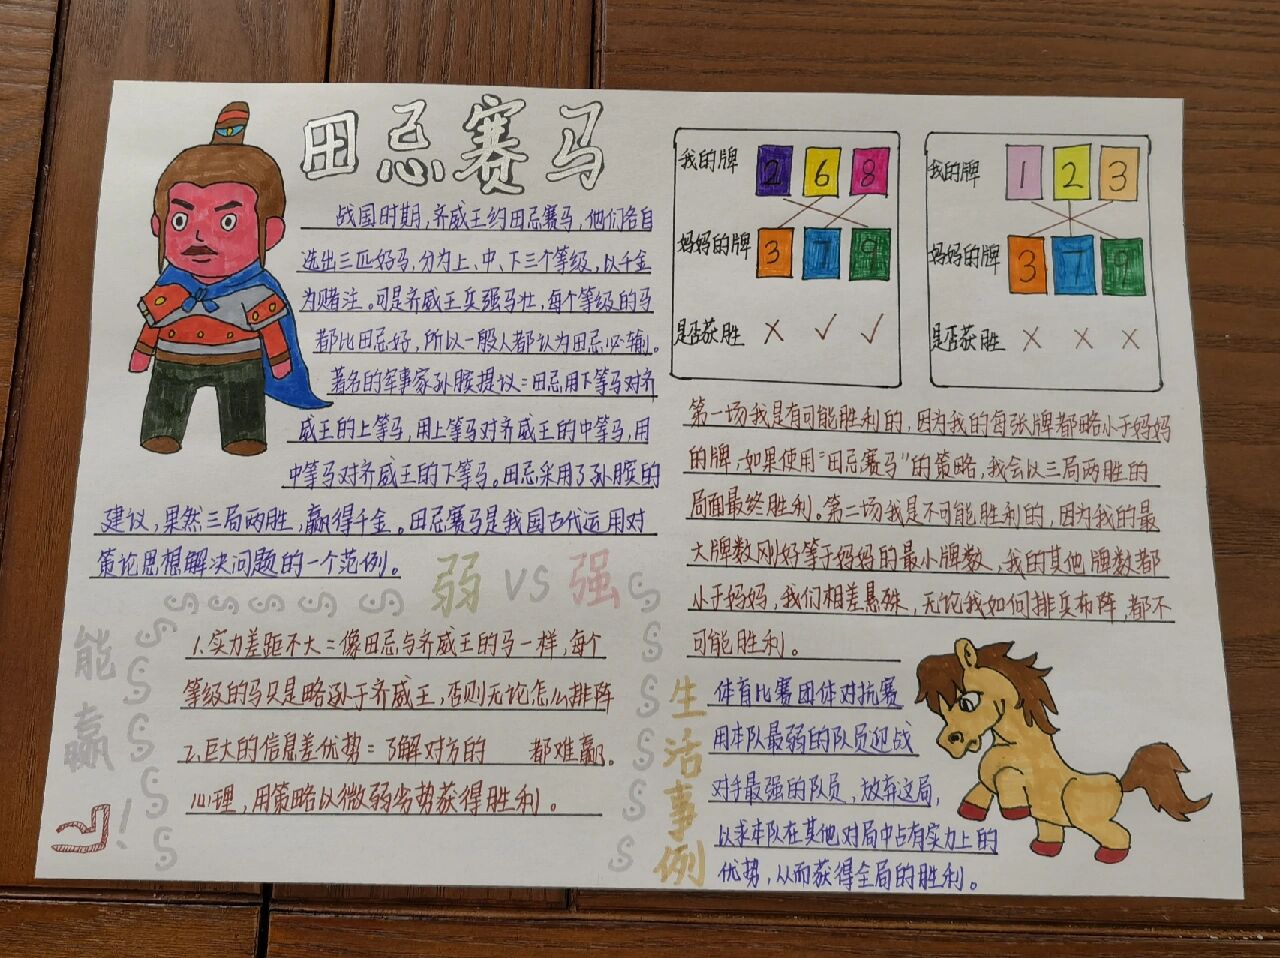 田忌赛马
战国时期,齐威王约田忌赛马,他们各自
选出三匹好马,分为上、中、下三个等级,以千金
为赌注。可是齐威王兵强马壮,每个等级的马
都比田忌好,所以一般人都认为田忌必输。
著名的军事家孙膑提议:田忌用下等马对齐
威王的上等马,用上等马对齐威王的中等马,用
中等马对齐威王的下等马。田忌采用了孙膑的
建议,果然三局两胜,赢得千金。田忌赛马是我国古代运用对
策论思想解决问题的一个范例。
弱 VS 强
能赢
!
1.实力差距不大:像田忌与齐威王的马一样,每个
等级的马只是略逊于齐威王,否则无论怎么排阵
都难赢。
2.巨大的信息差优势:了解对方的
心理,用策略以微弱劣势获得胜利。
我的牌 2 6 8
妈妈的牌 3 7 9
是否获胜 × ✓ ✓
我的牌 1 2 3
妈妈的牌 3 7 9
是否获胜 × × ×
第一场我是有可能胜利的,因为我的每张牌都略小于妈妈
的牌,如果使用“田忌赛马”的策略,我会以三局两胜的
局面最终胜利。第二场我是不可能胜利的,因为我的最
大牌数刚好等于妈妈的最小牌数,我的其他牌数都
小于妈妈,我们相差悬殊,无论我如何排兵布阵,都不
可能胜利。
生活事例
体育比赛团体对抗赛
用本队最弱的队员迎战
对手最强的队员,放弃这局,
以求本队在其他对局中占有实力上的
优势,从而获得全局的胜利。